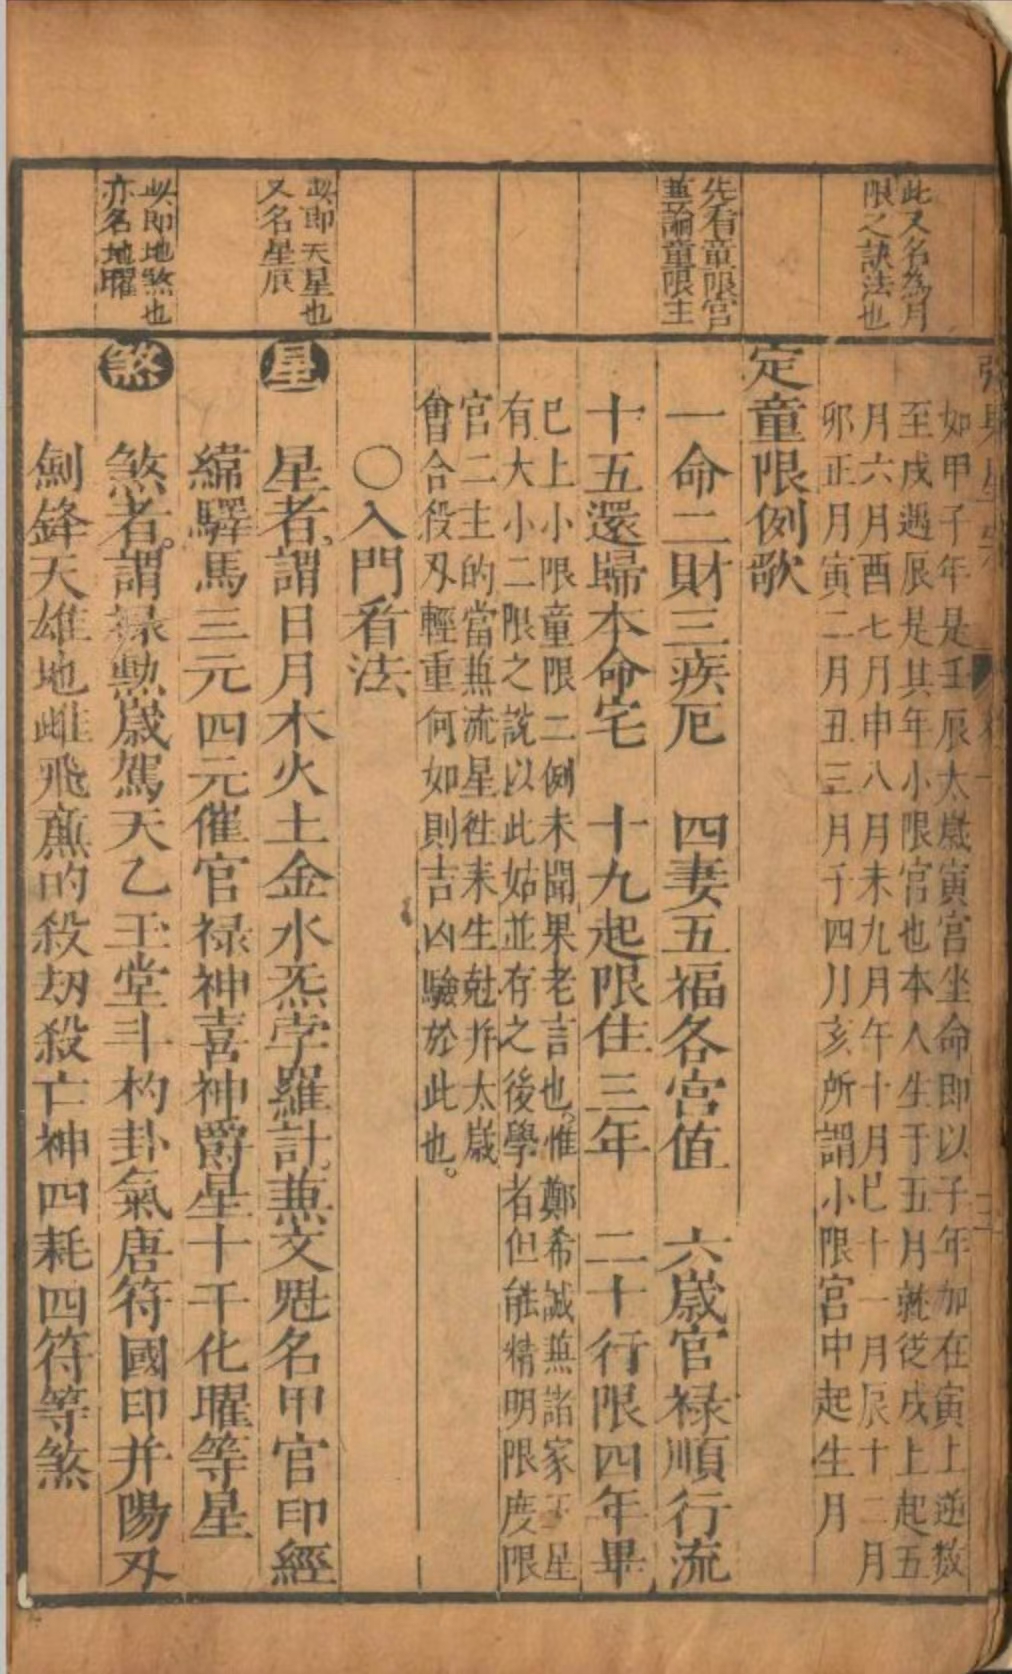 此又名為月
限之訣法也
如甲子年是壬辰太歲寅宮坐命即以子年加在寅上逆数
至戌遇辰是其年小限官也本人生于五月就從戌上起五
月六月酉七月申八月未九月午十月巳十一月辰十二月
卯正月寅二月丑三月子四月亥所謂小限宮中起生月
定童限例歌
先看童限宮
兼論童限主
一命二財三疾厄　四妻五福各宮值　六歲官禄順行流
十五還歸本命宅　十九起限住三年　二十行限四年畢
巳上小限童限二例未聞果老言也。惟鄭希誠兼諸家于星
有大小二限之說以此姑並存之後學者但能精明限度限
官二主的當兼流星徃来生尅并太歲
會合役刄輕重何如則吉凶驗於此也。
〇入門看法
此即天星也
又名星辰
星 星者、謂日月木火土金水炁孛羅計兼文魁名甲官印經
緯驛馬三元四元催官禄神喜神爵星十干化曜等星
此即地煞也
亦名地曜
煞 煞者。謂禄勲歲駕天乙玉堂斗杓卦氣唐符國印并陽刄
劍鋒天雄地雌飛㢘的殺刼殺亡神四耗四符等煞